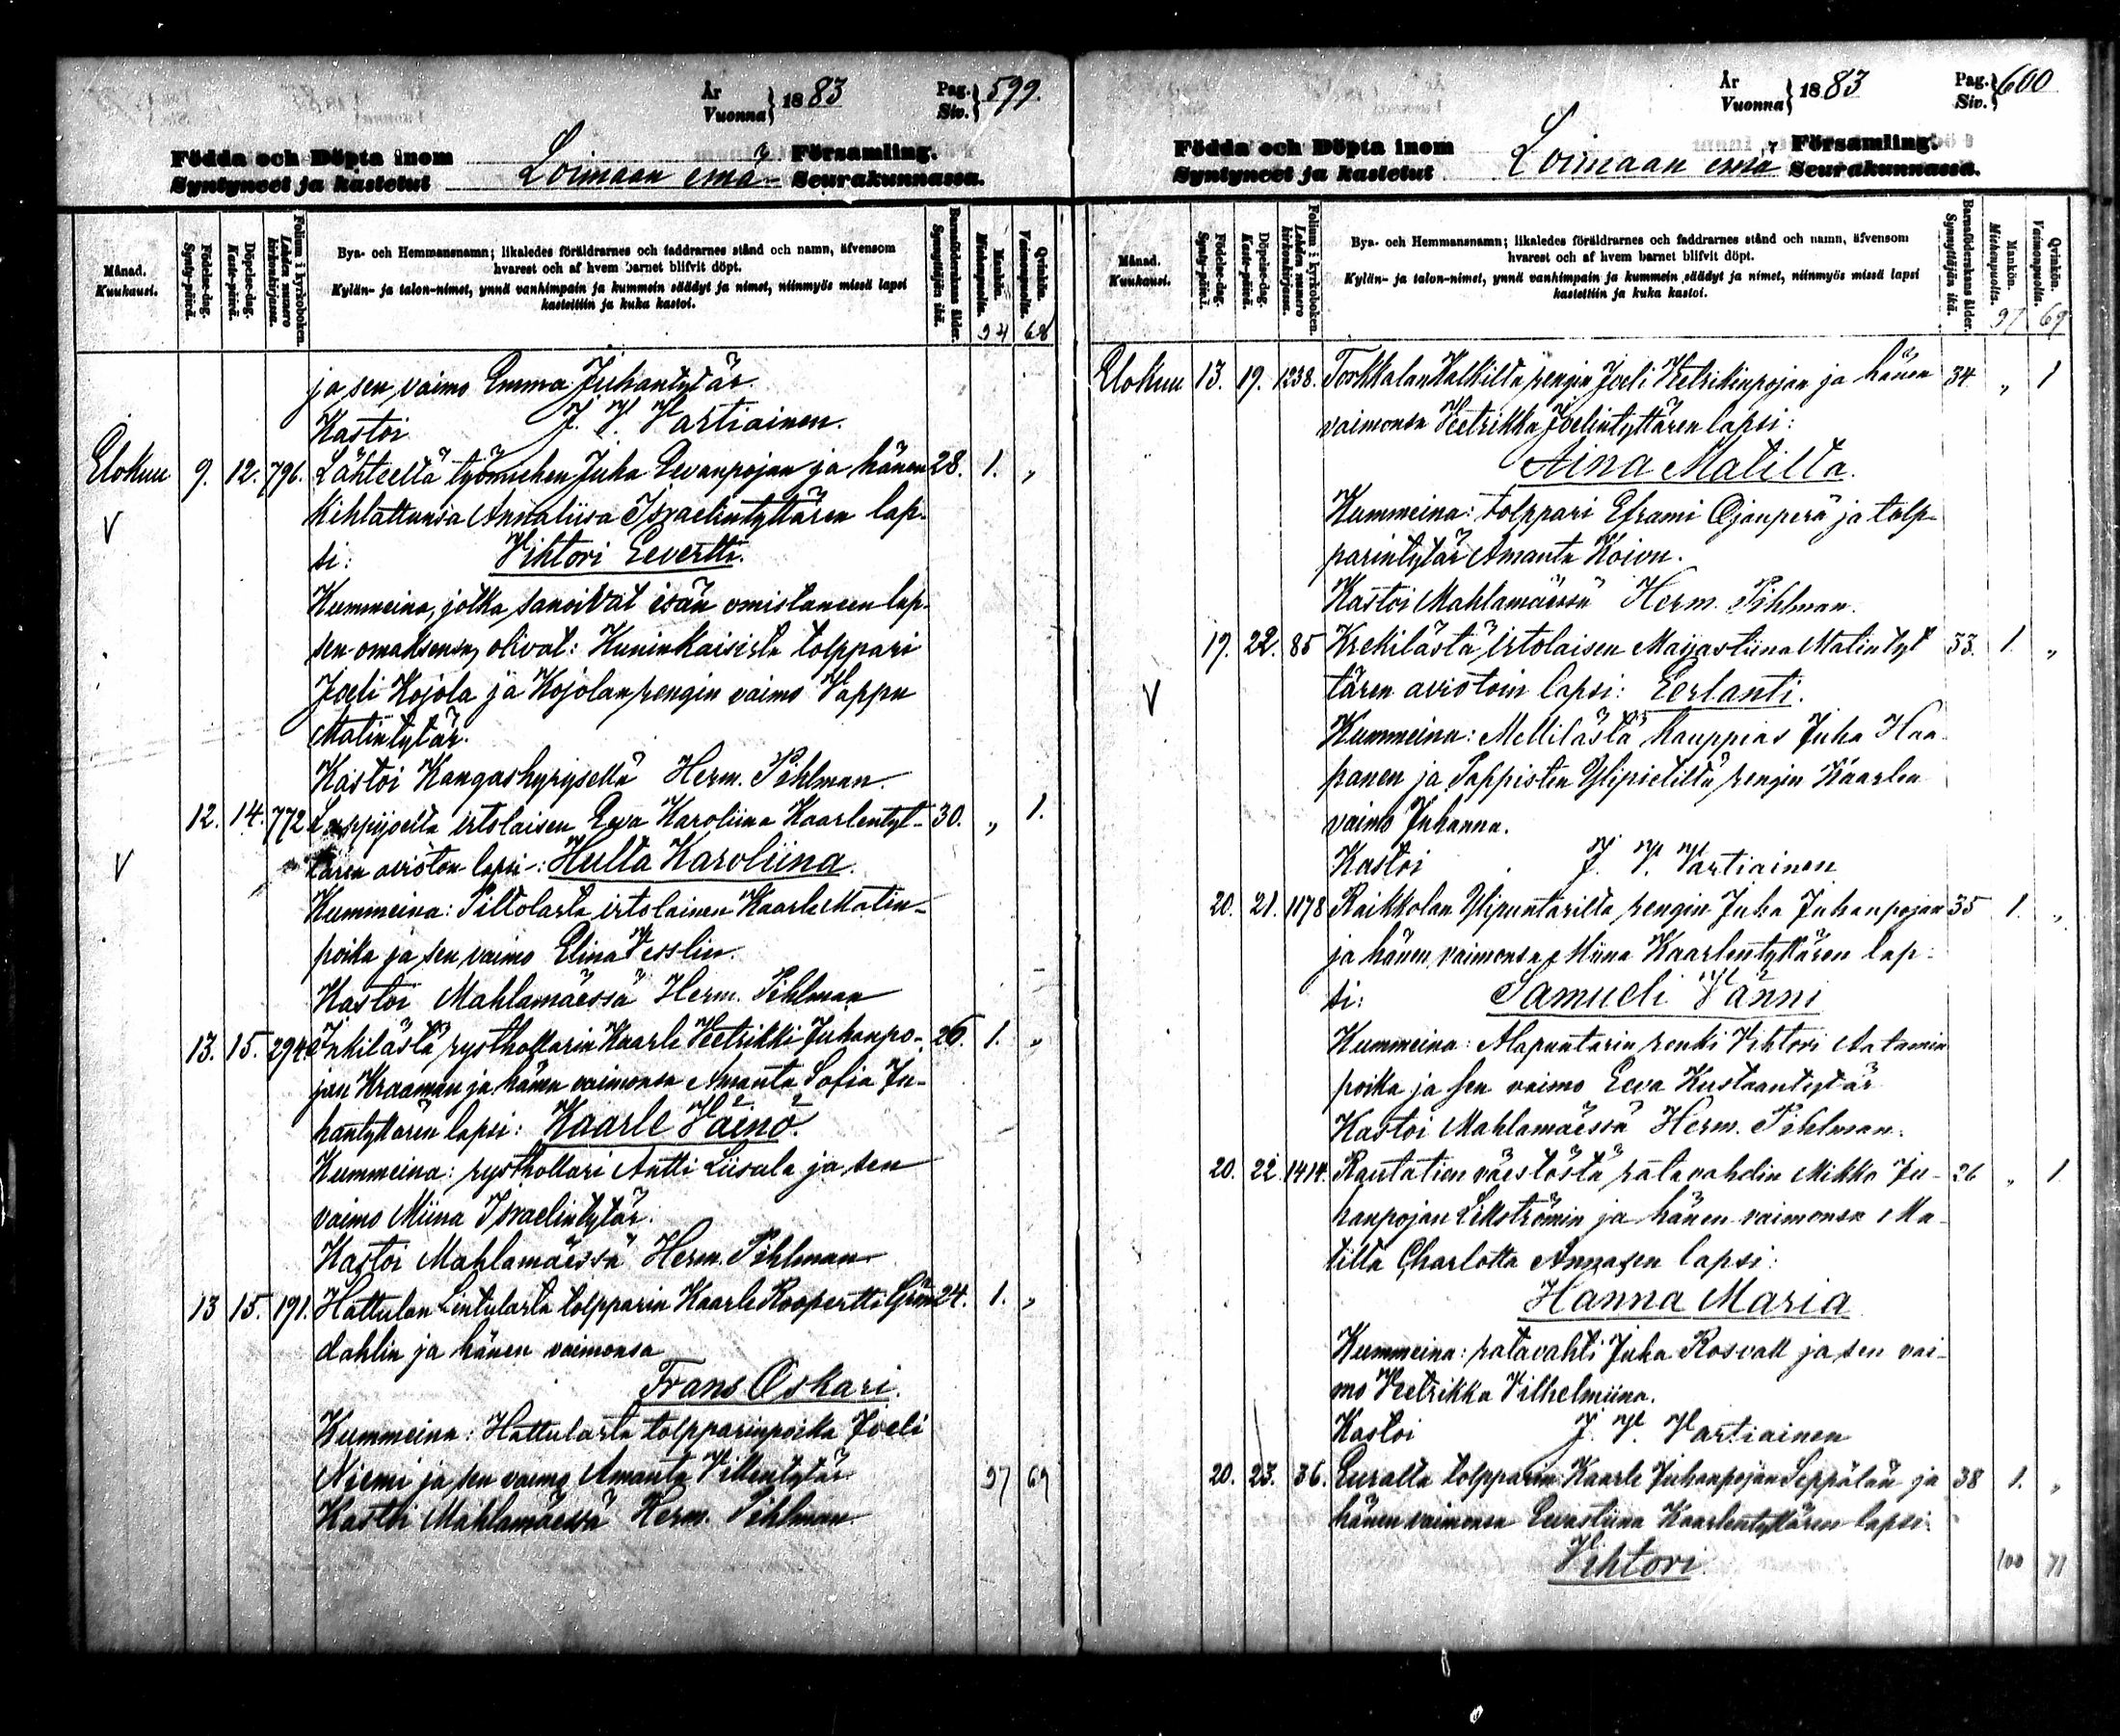 År
Vuonna } 1883 Pag.
Siv. } 599.
Födda och Döpta inom
Syntyneet ja kastetut Loimaan emä- Församling.
Seurakunnassa.
Månad.
Kuukausi.
Födelse-dag.
Synty-päivä.
Döpelse-dag.
Kaste-päivä.
Folium i kyrkoboken.
Lehden numero kirkonkirjassa.
Bya- och Hemmansnamn; likaledes föräldrarnes och faddrarnes stånd och namn, äfvensom
hvarest och af hvem barnet blifvit döpt.
Kylän- ja talon-nimet, ynnä vanhimpain ja kummein säädyt ja nimet, niinmyös missä lapsi
kastettiin ja kuka kastoi.
Barnaföderskans ålder.
Synnyttäjän ikä.
Mankön.
Miehenpuolia.
Qvinkön.
Vaimonpuolia.
94 68
ja sen vaimo Emma Juhantytär.
Kastoi J. V. Vartiainen.
Elokuu 9. 12. 796. Lähteeltä työmiehen Juha Eevanpojan ja hänen 28. 1. "
V kihlattunsa Annaliisa Israelintyttären lap-
si: Vihtori Eevertti.
Kummeina, jotka sanoivat isän omistaneen lap-
sen omaksensa, olivat: Kuninkaisista tolppari
Joeli Kojola ja Kojolan rengin vaimo Vappu
Matintytär.
Kastoi Herm. Pihlman.
12. 14. 772. irtolaisen Eeva Karoliina Kaarlentyt- 30. " 1.
V tären avioton lapsi: Hulta Karoliina.
Kummeina: Piltolasta irtolainen Kaarle Matin-
poika ja sen vaimo Elina Vesslin.
Kastoi Mahlamäessä Herm. Pihlman
13. 15. 294. Inkilästä rysthollarin Kaarle Vetrikki Juhanpo- 26. 1. "
jan Kraaman ja hänen vaimonsa Amanta Sofia Ju-
hantyttären lapsi: Kaarle Väinö.
Kummeina: rysthollari Antti Liisala ja sen
vaimo Miina Israelintytär.
Kastoi Mahlamäessä Herm. Pihlman
13 15. 191. Hattulan Lintulasta tolpparin Kaarle Roopertti Grön- 24. 1. "
dahlin ja hänen vaimonsa
Frans Oskari.
Kummeina: Hattulasta tolpparinpoika Joeli
Niemi ja sen vaimo Amanta Villentytär 97 69
Kastoi Mahlamäessä Herm. Pihlman
År
Vuonna } 1883 Pag.
Siv. } 600
Födda och Döpta inom
Syntyneet ja kastetut Loimaan emä- Församling.
Seurakunnassa.
Månad.
Kuukausi.
Födelse-dag.
Synty-päivä.
Döpelse-dag.
Kaste-päivä.
Folium i kyrkoboken.
Lehden numero kirkonkirjassa.
Bya- och Hemmansnamn; likaledes föräldrarnes och faddrarnes stånd och namn, äfvensom
hvarest och af hvem barnet blifvit döpt.
Kylän- ja talon-nimet, ynnä vanhimpain ja kummein säädyt ja nimet, niinmyös missä lapsi
kastettiin ja kuka kastoi.
Barnaföderskans ålder.
Synnyttäjän ikä.
Mankön.
Miehenpuolia.
Qvinkön.
Vaimonpuolia.
97 69
Elokuu 13. 19. 1238. Torkkalan rengin Joeli Hetrikinpojan ja hänen 34 " 1
vaimonsa Veetrikka Joelintyttären lapsi:
Aina Matilta.
Kummeina: tolppari Eframi Ojanperä ja tolp-
parintytär Amanta Koivu.
Kastoi Mahlamäessä Herm. Pihlman.
17. 22. 85 Krekilästä irtolaisen Maijastiina Matintyt 33. 1. "
V tären avistoin lapsi: Eerlanti.
Kummeina: Mellilästä kauppias Juha Haa-
panen ja Pappisten Ylipietiltä rengin Kaarlen
vaimo Juhanna.
Kastoi J. V. Vartiainen
20. 21. 1178 Raikkolan Ylipuntarilta rengin Juha Juhanpojan 35 1. "
ja hänen vaimonsa Miina Kaarlentyttären lap-
si: Samueli Vänni
Kummeina: Alapuntarin renki Vihtori Aatamin
poika ja sen vaimo Eeva Kustaantytär
Kastoi Mahlamäessä Herm. Pihlman.
20. 22 1414. Rautatien väestöstä ratavahdin Mikko Ju- 26 " 1
hanpojan Lekströmin ja hänen vaimonsa Ma-
tilta Charlotta Annasen lapsi:
Hanna Maria
Kummeina: ratavahti Juha Rosvall ja sen vai-
mo Veetrikka Vilhelmiina.
Kastoi J. V. Vartiainen
20. 23. 36. Euralta tolpparin Kaarle Juhanpojan Seppälän ja 38 1. "
hänen vaimonsa Eevastiina Kaarlentyttären lapsi
Vihtori 100 71